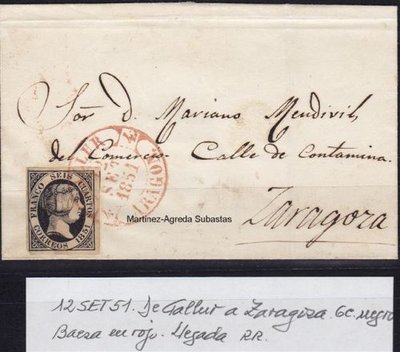 Sor. D. Mariano Mendivil,
del Comercio. Calle de Contamina.
Zaragoza
SET.
1851
ARAGON
FRANCO SEIS CUARTOS
CORREOS 1851
Martinez-Agreda Subastas
12 SET 51. De Gallur a Zaragoza 6c. negro
Baeza en rojo. Llegada RR.